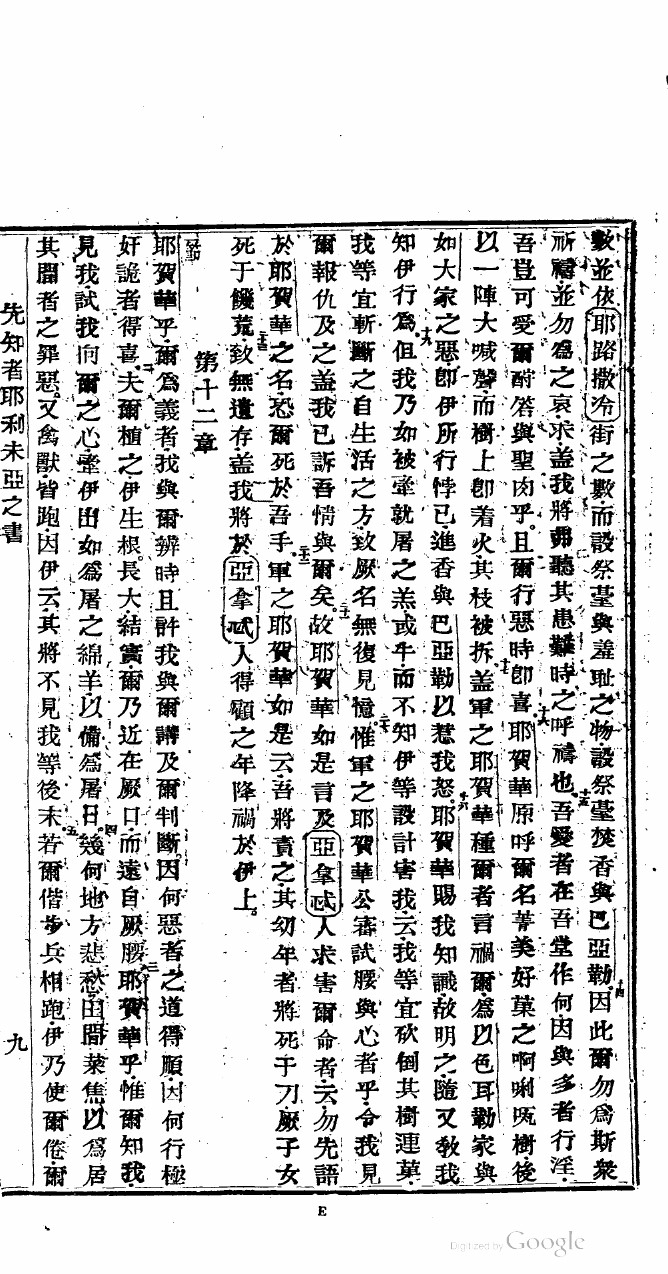 數並依耶路撒冷街之數而設祭䑓與羞耻之物設祭䑓焚香與巴亞勒因此爾勿爲斯衆
祈禱並勿爲之哀求盖我將弗聽其患難時之呼禱也吾愛者在吾堂作何因與多者行淫
吾豈可受爾酧答與聖肉乎且爾行惡時卽喜耶賀華原呼爾名菁美好菓之啊唎㕵樹後
以一陣大喊聲而樹上卽着火其枝被拆盖軍之耶賀華種爾者言禍爾爲以色耳勒家與
如大家之惡卽伊所行悖已進香與巴亞勒以惹我怒耶賀華賜我知識故明之隨又敎我
知伊行爲但我乃如被牽就屠之羔或牛而不知伊等設計害我云我等宜砍倒其樹連菓
我等宜斬斷之自生活之方致厥名無復見憶惟軍之耶賀華公審試腰與心者乎令我見
爾報仇及之盖我已訴吾情與爾矣故耶賀華如是言及亞拿忒人求害爾命者云勿先語
於耶賀華之名恐爾死於吾手軍之耶賀華如是云吾將責之其幼年者將死于刀厥子女
死于饑荒致無遺存盖我將於亞拿忒人得顧之年降禍於伊上
第十二章
耶賀華乎爾爲義者我與爾辨時且許我與爾講及爾判斷因何惡者之道得順因何行極
奸詭者得喜夫爾植之伊生根長大結實爾乃近在厥口而遠自厥腰耶賀華乎惟爾知我
見我試我向爾之心牽伊出如爲屠之綿羊以備爲屠日幾何地方悲愁田間菜焦以爲居
其間者之罪惡又禽獸皆跑因伊云其將不見我等後末若爾偕步兵相跑伊乃使爾倦爾
先知者耶利未亞之書
九
E
Digitized by Google